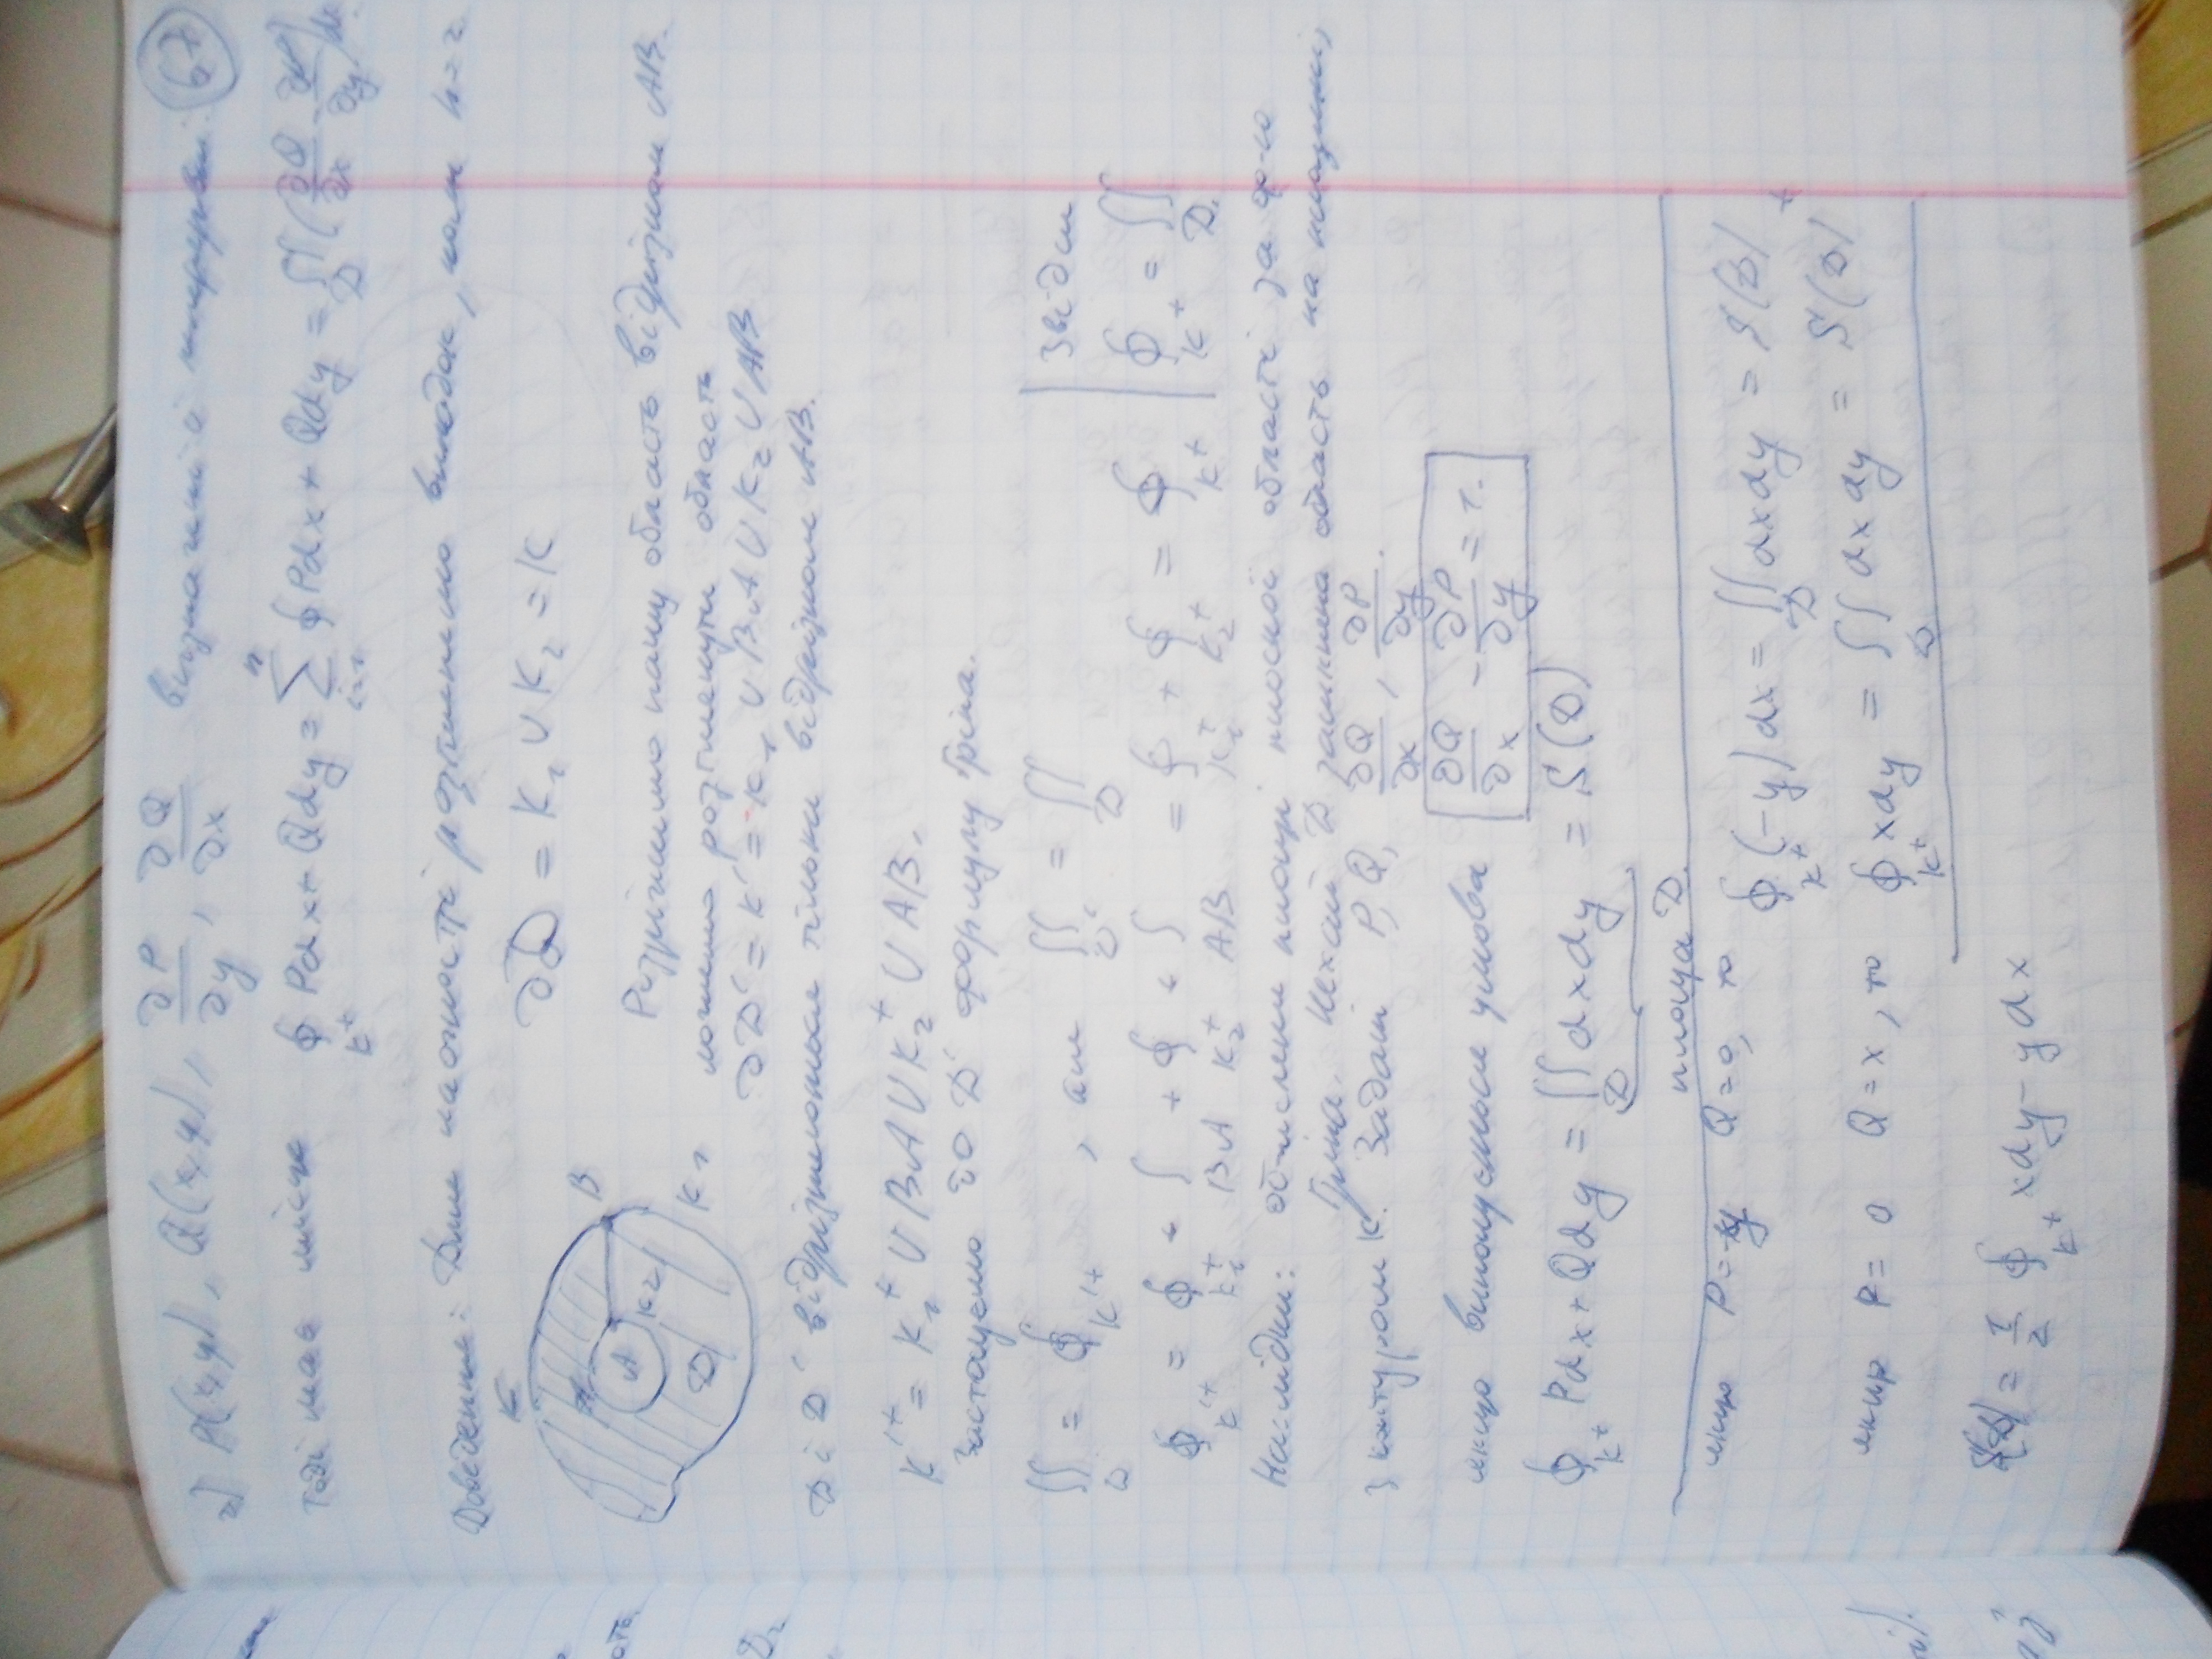 67
2) P(x,y), Q(x,y), ∂P/∂y, ∂Q/∂x визначені і неперервні.
Тоді має місце ∮_{K⁺} Pdx + Qdy = Σ_{i=1}^{n} ∮ Pdx + Qdy = ∬_D (∂Q/∂x - ∂P/∂y)dx
Доведення: Для наочності розглянемо випадок, коли n=2
∂D = K₁ ∪ K₂ = K
K
B
A
K₂
D
K₁
Розріжимо нашу область відрізком AB.
можемо розглянути область
∂D' = K' = K₁ ∪ BA ∪ K₂ ∪ AB
D і D' відрізняються тільки відрізком AB.
K'⁺ = K₁⁺ ∪ BA ∪ K₂⁺ ∪ AB.
Застосуємо до D' формулу Гріна.
∬_{D'} = ∮_{K'⁺}, але ∬_{D'} = ∬_D
∮_{K'⁺} = ∮_{K₁⁺} + ∫_{BA} + ∮_{K₂⁺} + ∫_{AB} = ∮_{K₁⁺} + ∮_{K₂⁺} = ∮_{K⁺}
Звідси
∮_{K⁺} = ∬_D.
Наслідки: обчислення площі плоскої області за ф-ю
Гріна. Нехай D замкнена область на площині,
з контуром K. Задані P, Q, ∂Q/∂x, ∂P/∂y.
якщо виконується умова ∂Q/∂x - ∂P/∂y = 1.
∮_{K⁺} Pdx + Qdy = ∬_D dxdy = S(D)
площа D.
якщо P = -y Q = 0, то ∮_{K⁺} (-y)dx = ∬_D dxdy = S(D) +
якщо P = 0 Q = x, то ∮_{K⁺} xdy = ∬_D dxdy = S(D)
S(D) = 1/2 ∮_{K⁺} xdy - ydx
D₂